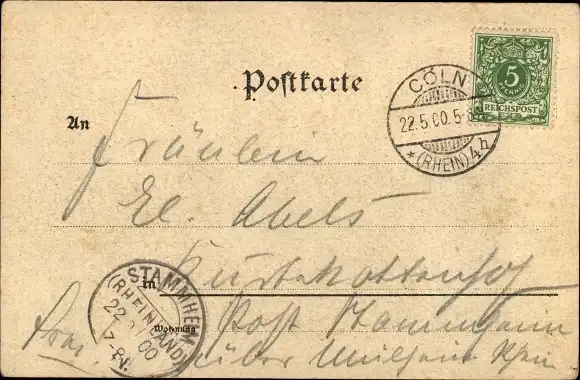 Postkarte
CÖLN
22.5.00.5-
* (RHEIN) 4h
5
PFENNIG
REICHSPOST
An
Fräulein
El. Abels
in
STAMMHEIM
(RHEINLAND)
22 00
7-8V.
Wohnung
Post Stammheim
über Mülheim Rhein